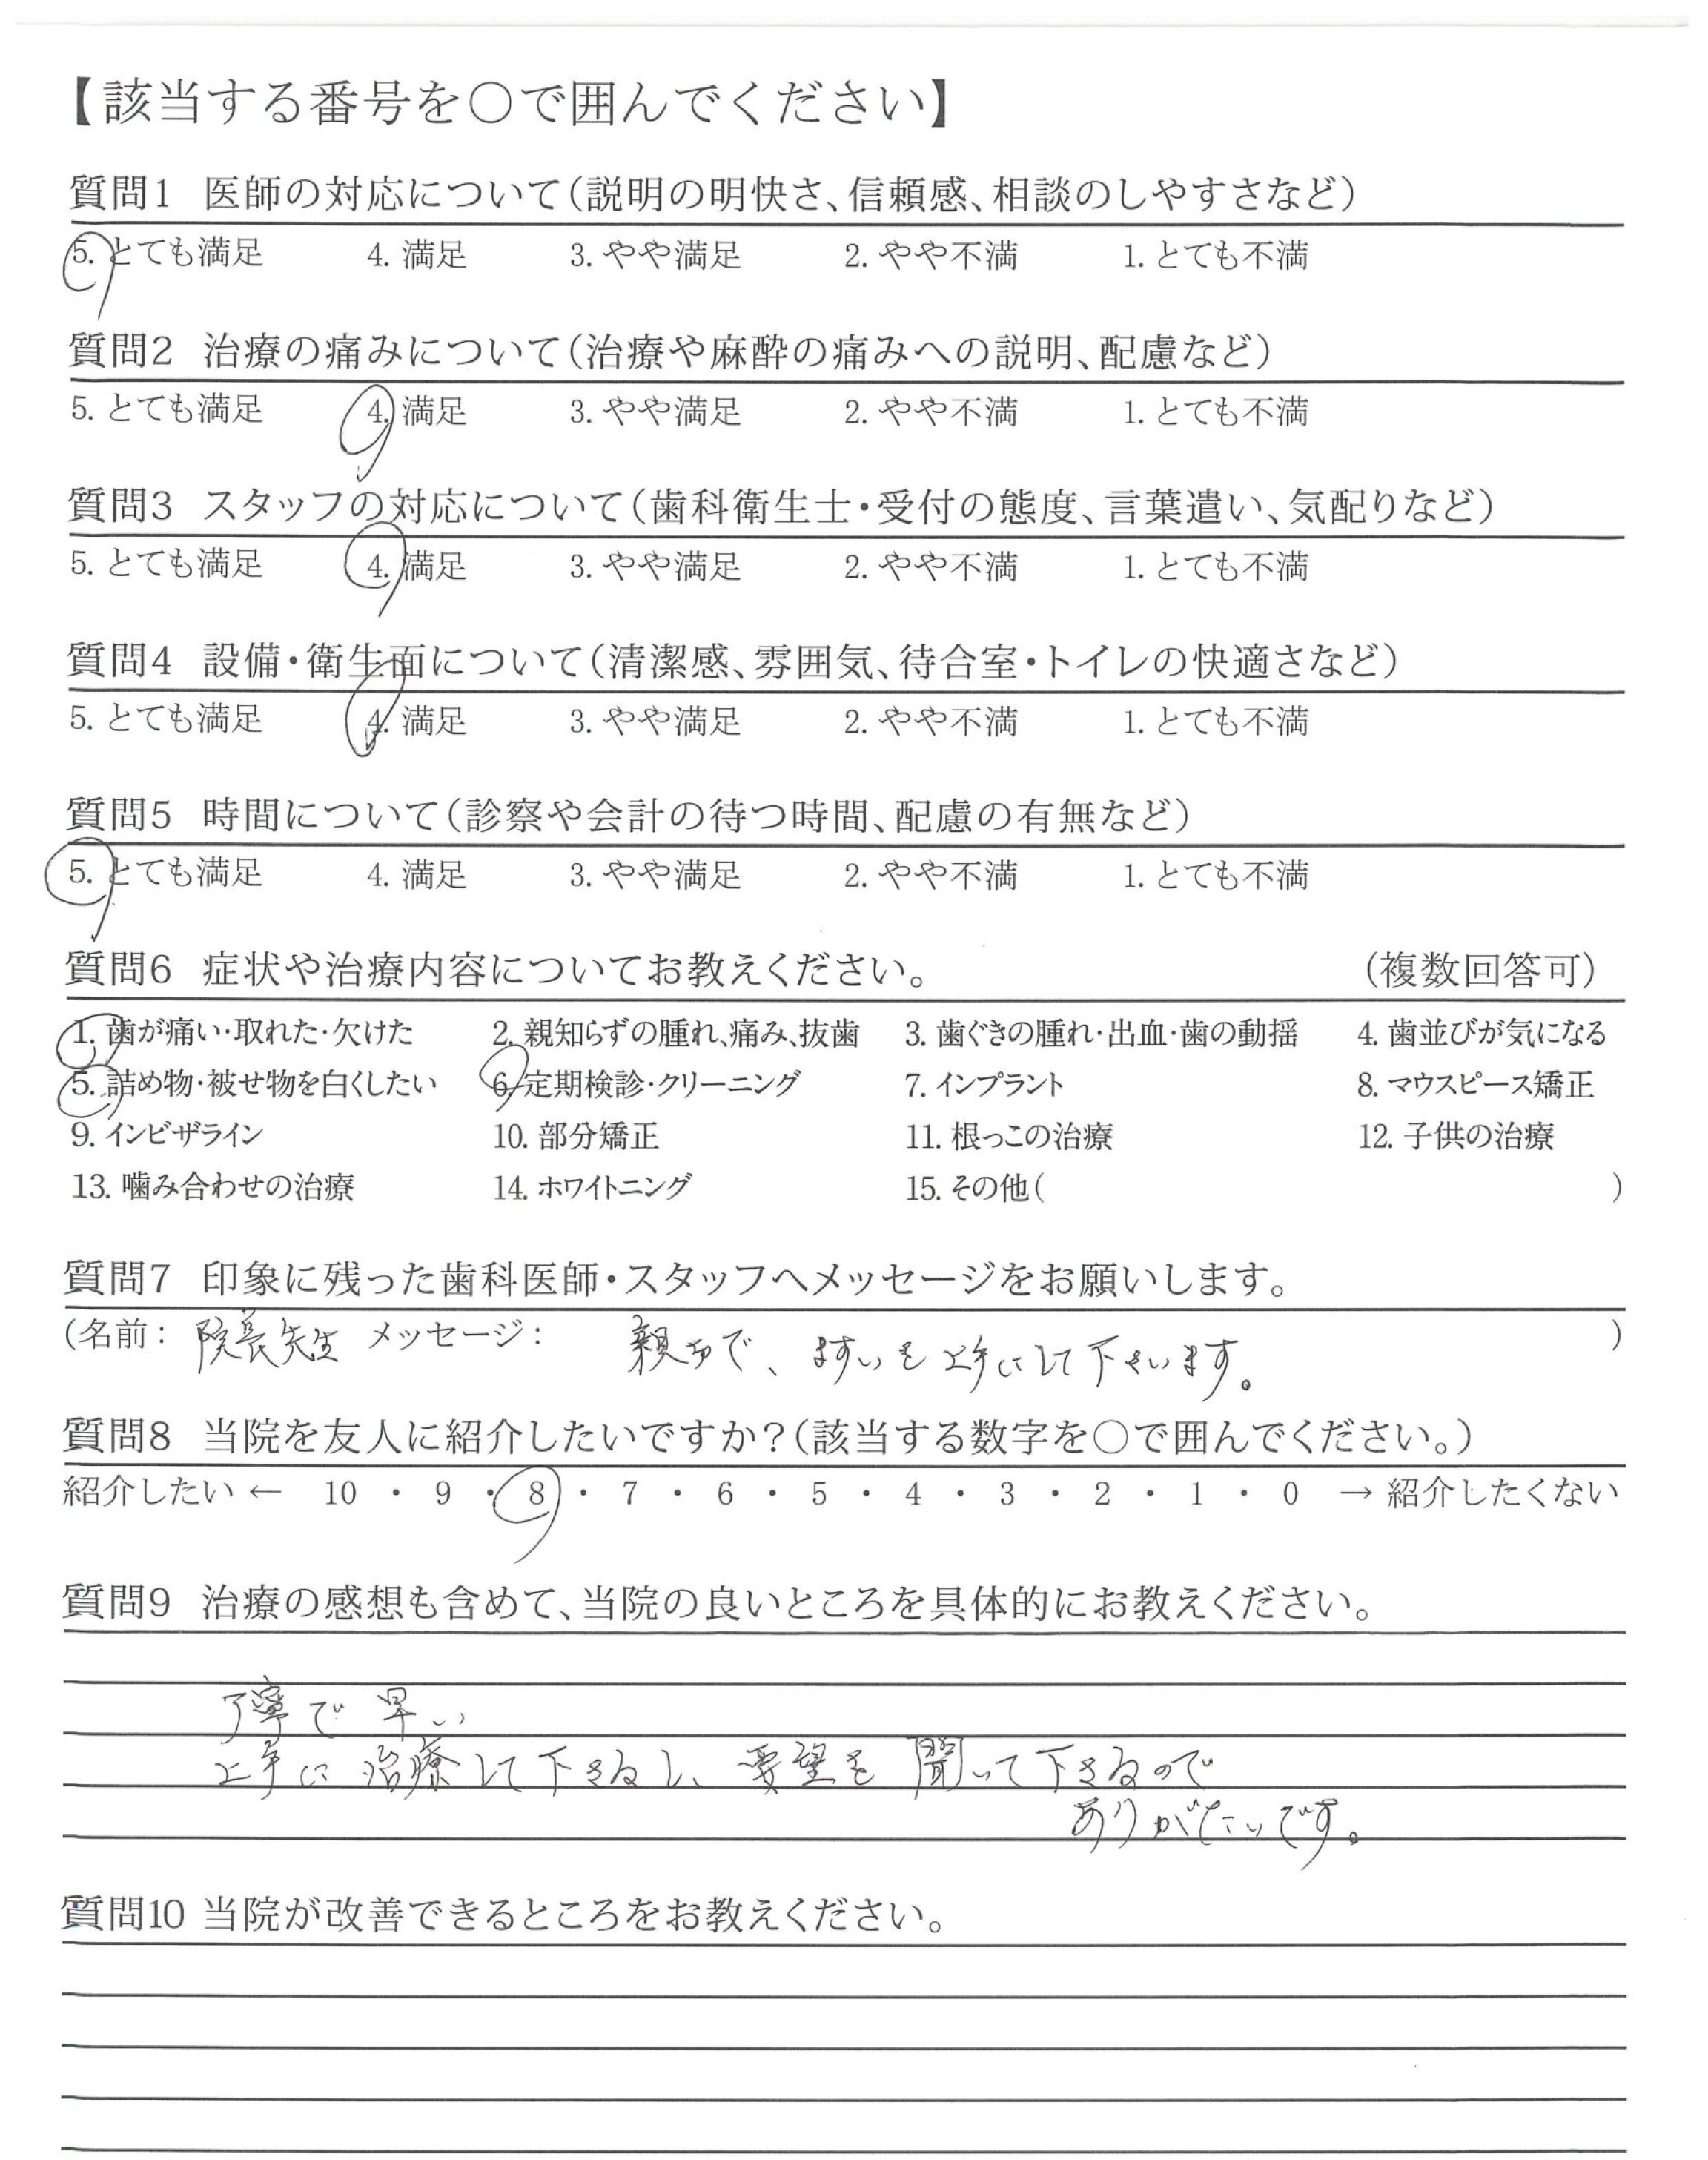 【該当する番号を○で囲んでください】
質問1 医師の対応について(説明の明快さ、信頼感、相談のしやすさなど)
5. とても満足 4. 満足 3. やや満足 2. やや不満 1. とても不満
質問2 治療の痛みについて(治療や麻酔の痛みへの説明、配慮など)
5. とても満足 4. 満足 3. やや満足 2. やや不満 1. とても不満
質問3 スタッフの対応について(歯科衛生士・受付の態度、言葉遣い、気配りなど)
5. とても満足 4. 満足 3. やや満足 2. やや不満 1. とても不満
質問4 設備・衛生面について(清潔感、雰囲気、待合室・トイレの快適さなど)
5. とても満足 4. 満足 3. やや満足 2. やや不満 1. とても不満
質問5 時間について(診察や会計の待つ時間、配慮の有無など)
5. とても満足 4. 満足 3. やや満足 2. やや不満 1. とても不満
質問6 症状や治療内容についてお教えください。 (複数回答可)
1. 歯が痛い・取れた・欠けた 2. 親知らずの腫れ、痛み、抜歯 3. 歯ぐきの腫れ・出血・歯の動揺 4. 歯並びが気になる
5. 詰め物・被せ物を白くしたい 6. 定期検診・クリーニング 7. インプラント 8. マウスピース矯正
9. インビザライン 10. 部分矯正 11. 根っこの治療 12. 子供の治療
13. 噛み合わせの治療 14. ホワイトニング 15. その他( )
質問7 印象に残った歯科医師・スタッフへメッセージをお願いします。
(名前: 院長先生 メッセージ: 親切で、ますいを上手にして下さいます。 )
質問8 当院を友人に紹介したいですか?(該当する数字を○で囲んでください。)
紹介したい ← 10 ・ 9 ・ 8 ・ 7 ・ 6 ・ 5 ・ 4 ・ 3 ・ 2 ・ 1 ・ 0 → 紹介したくない
質問9 治療の感想も含めて、当院の良いところを具体的にお教えください。
丁寧で早い
上手に治療して下さるし、要望を聞いて下さるので
ありがたいです。
質問10 当院が改善できるところをお教えください。